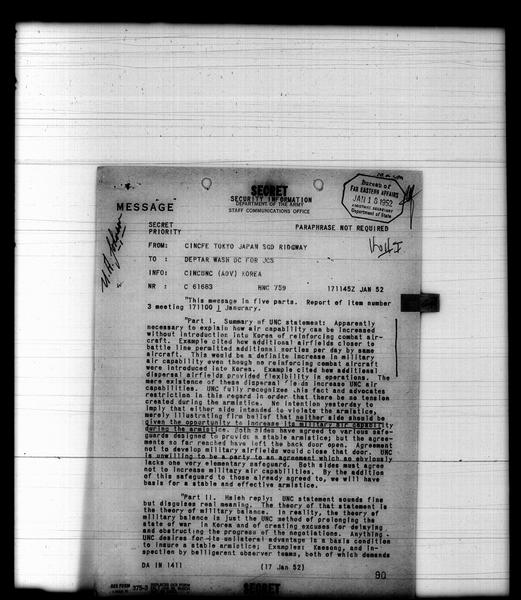 SECRET
SECURITY INFORMATION
DEPARTMENT OF THE ARMY
STAFF COMMUNICATIONS OFFICE
MESSAGE
Bureau of
FAR EASTERN AFFAIRS
JAN 1 8 1952
Department of State
SECRET
PRIORITY
PARAPHRASE NOT REQUIRED
FROM: CINCFE TOKYO JAPAN SGD RIDGWAY
TO : DEPTAR WASH DC FOR JCS
INFO: CINCUNC (ADV) KOREA
NR : C 61683 HNC 759 171145Z JAN 52
"This message in five parts. Report of item number
3 meeting 171100 I January.
"Part I. Summary of UNC statement: Apparently
necessary to explain how air capability can be increased
without introduction into Korea of reinforcing combat air-
craft. Example cited how additional airfields closer to
battle line permitted additional sorties per day by same
aircraft. This would be a definite increase in military
air capability even though no reinforcing combat aircraft
were introduced into Korea. Example cited how additional
dispersal airfields provided flexibility in operations. The
mere existence of these dispersal fields increase UNC air
capabilities. UNC fully recognizes this fact and advocates
restriction in this regard in order that there be no tension
created during the armistice. No intention yesterday to
imply that either side intended to violate the armistice,
merely illustrating firm belief that neither side should be
given the opportunity to increase its military air capability
during the armistice. Both sides have agreed to various safe-
guards designed to provide a stable armistice; but the agree-
ments so far reached have left the back door open. Agreement
not to develop military airfields would close that door. UNC
is unwilling to be a party to an agreement which so obviously
lacks one very elementary safeguard. Both sides must agree
not to increase military air capabilities. By the addition
of this safeguard to those already agreed to, we will have
basis for a stable and effective armistice.
"Part II. Hsieh reply: UNC statement sounds fine
but disguises real meaning. The theory of that statement is
the theory of military balance. In reality, the theory of
military balance is just the UNC method of prolonging the
state of war in Korea and of creating excuses for delaying
and obstructing the progress of the negotiations. Anything
UNC desires for its unilateral advantage is a basis condition
to insure a stable armistice; Examples: Kaesong, and in-
spection by belligerent observer teams, both of which demands
DA IN 1411 (17 Jan 52)
90
375-3
SECRET